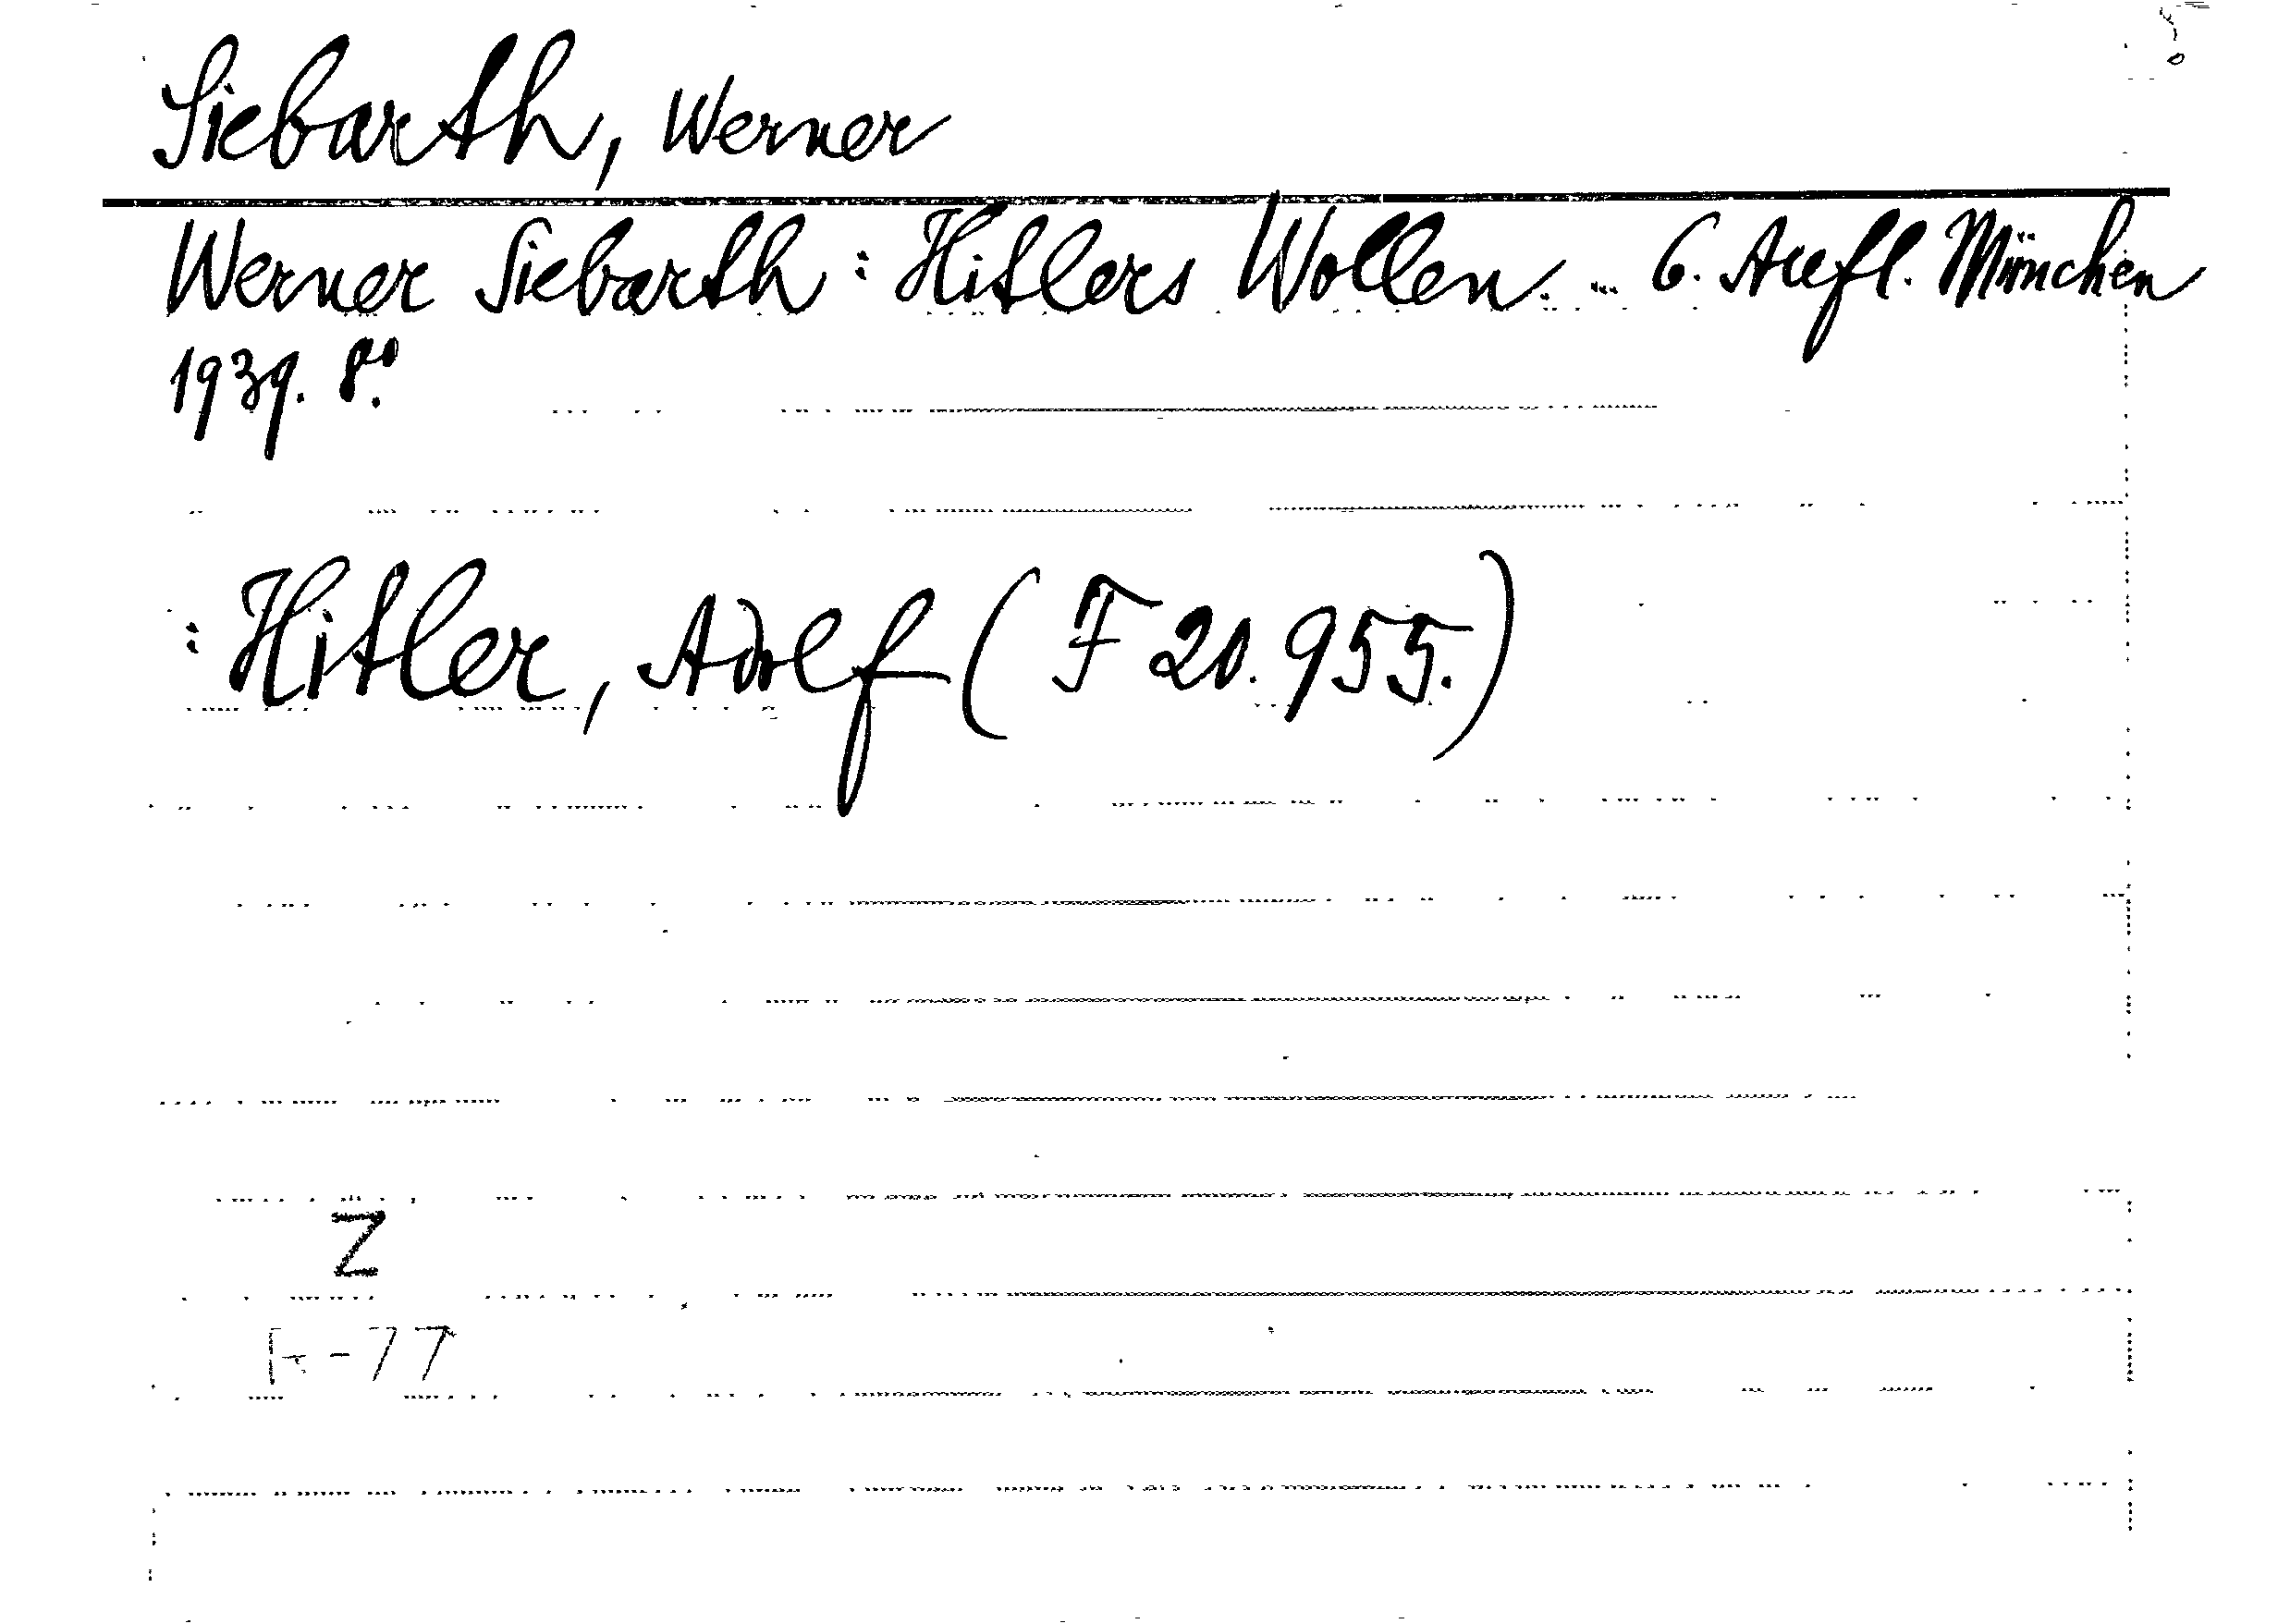 Siebarth, Werner
Werner Siebarth: Hitlers Wollen. ... 6. Aufl. München
1939. 8°.
: Hitler, Adolf (F 20.955.)
Z
R-77